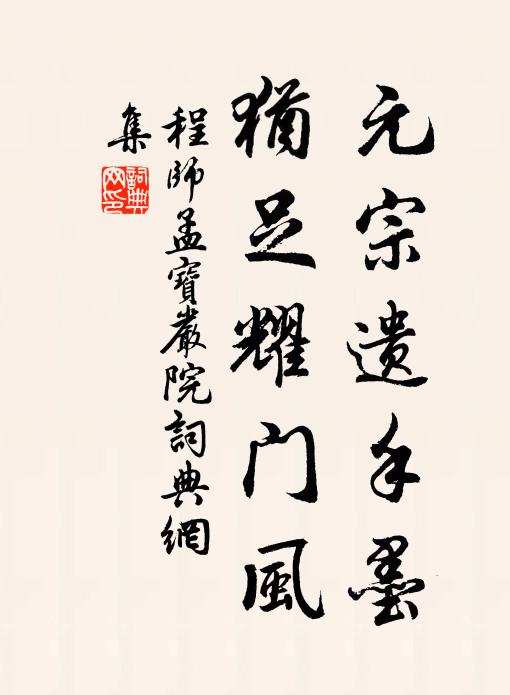 元宗遗手墨
猶足耀门風
程師孟寶巖院詞典網
集
詞典网印